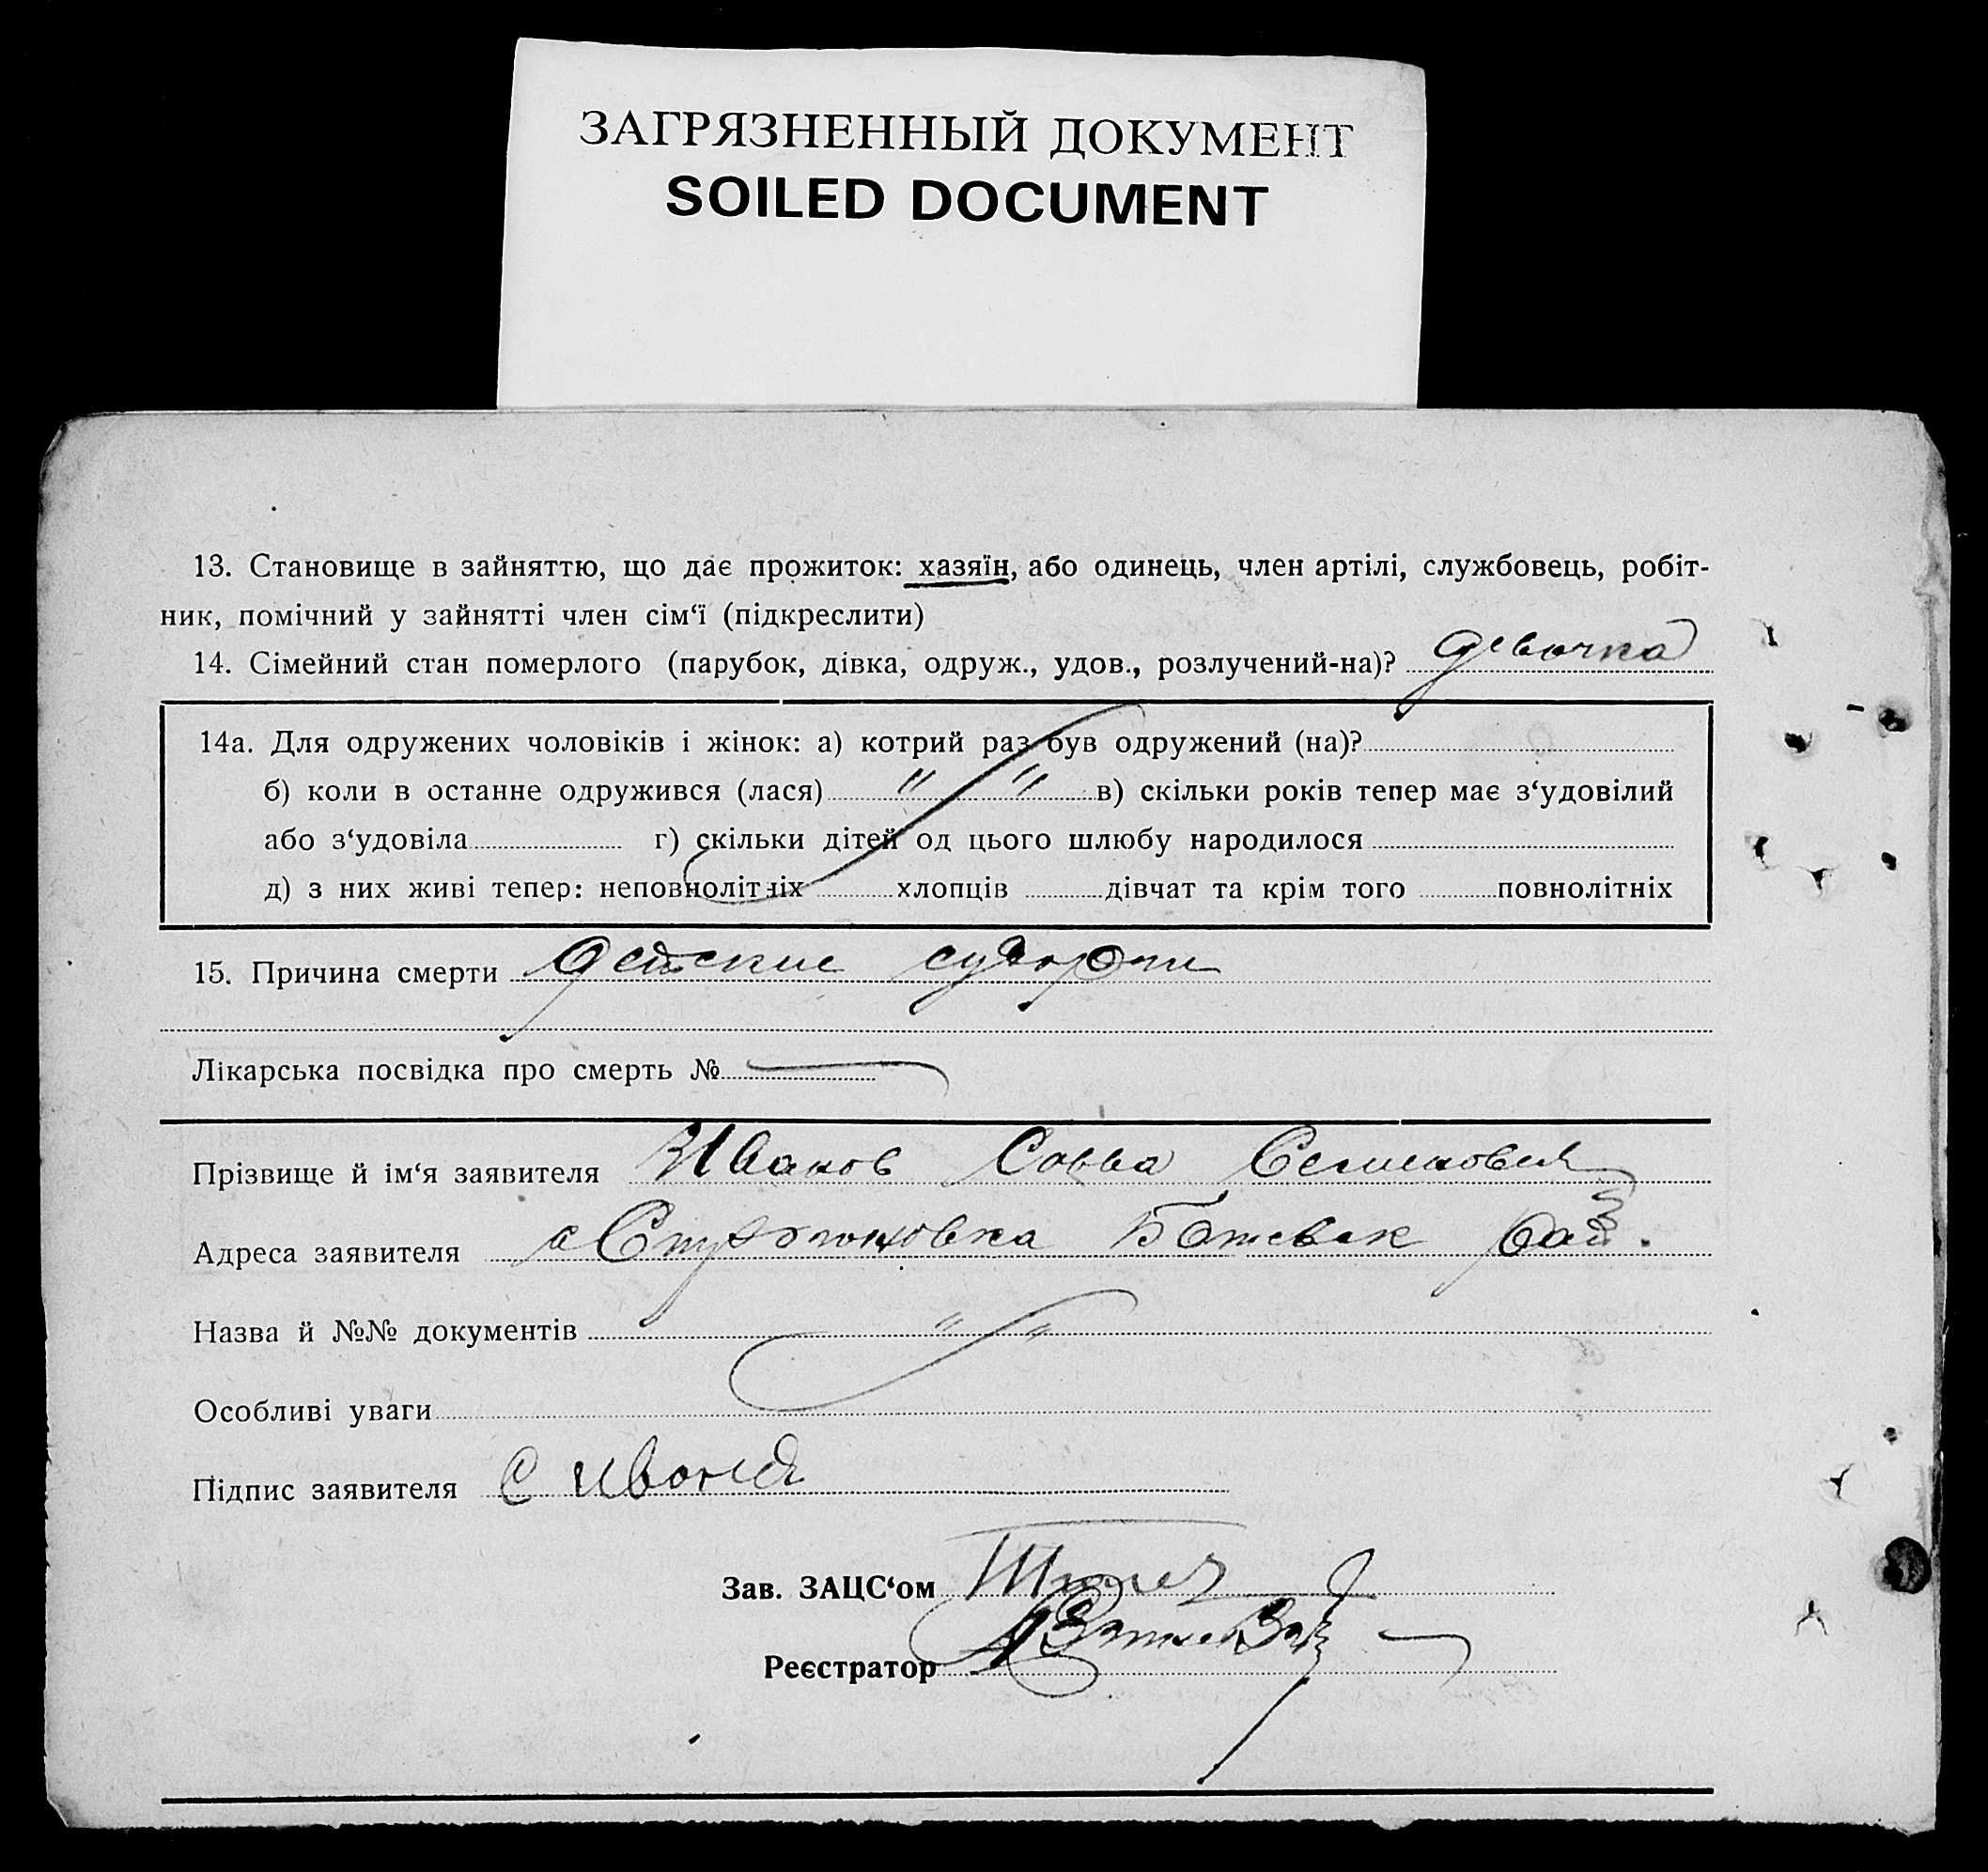 ЗАГРЯЗНЕННЫЙ ДОКУМЕНТ
SOILED DOCUMENT
13. Становище в зайняттю, що дає прожиток: хазяїн, або одинець, член артілі, службовець, робіт-
ник, помічний у зайнятті член сім‘ї (підкреслити)
14. Сімейний стан померлого (парубок, дівка, одруж., удов., розлучений-на)? девочка
14а. Для одружених чоловіків і жінок: а) котрий раз був одружений (на)?
б) коли в останне одружився (лася) " " в) скільки років тепер має з‘удовілий
або з‘удовіла г) скільки дітей од цього шлюбу народилося
д) з них живі тепер: неповнолітніх хлопців дівчат та крім того повнолітніх
15. Причина смерти Детские судороги
Лікарська посвідка про смерть №
Прізвище й ім‘я заявителя Иванов Савва Семенович
Адреса заявителя с
Назва й №№ документів " "
Особливі уваги
Підпис заявителя С
Зав. ЗАЦС‘ом
Реєстратор